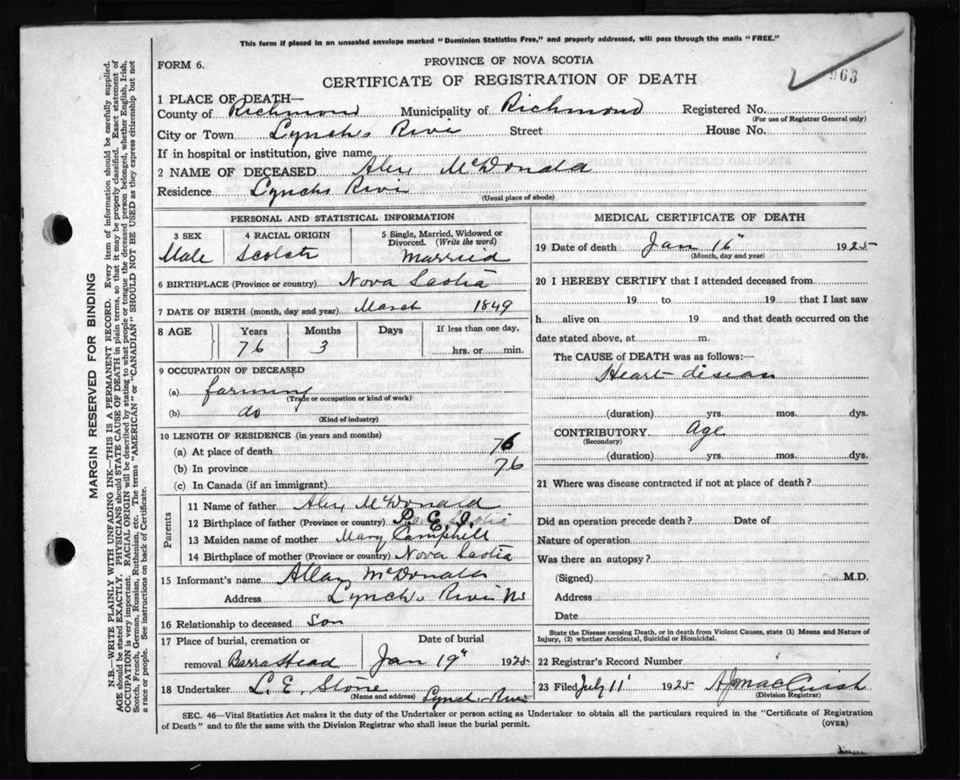 This form if placed in an unsealed envelope marked "Dominion Statistics Free," and properly addressed, will pass through the mails "FREE."
FORM 6.
PROVINCE OF NOVA SCOTIA
CERTIFICATE OF REGISTRATION OF DEATH
963
1 PLACE OF DEATH—
County of Richmond Municipality of Richmond Registered No.
(For use of Registrar General only)
City or Town Lynchs River Street House No.
If in hospital or institution, give name
2 NAME OF DECEASED Alex McDonald
Residence Lynchs River
(Usual place of abode)
PERSONAL AND STATISTICAL INFORMATION
3 SEX
Male
4 RACIAL ORIGIN
Scotch
5 Single, Married, Widowed or Divorced. (Write the word)
Married
6 BIRTHPLACE (Province or country) Nova Scotia
7 DATE OF BIRTH (month, day and year) March 1849
8 AGE Years Months Days If less than one day,
76 3 hrs. or min.
9 OCCUPATION OF DECEASED
(a) farming
(Trade or occupation or kind of work)
(b) do
(Kind of industry)
10 LENGTH OF RESIDENCE (in years and months)
(a) At place of death 76
(b) In province 76
(c) In Canada (if an immigrant)
Parents
11 Name of father Alex McDonald
12 Birthplace of father (Province or country) P. E. I.
13 Maiden name of mother Mary Campbell
14 Birthplace of mother (Province or country) Nova Scotia
15 Informant's name Allan McDonald
Address Lynchs River NS
16 Relationship to deceased Son
17 Place of burial, cremation or Date of burial
removal Barra Head Jan 19" 1925
18 Undertaker L. E. Stone
(Name and address) Lynchs River
MEDICAL CERTIFICATE OF DEATH
19 Date of death Jan 16" 1925
(Month, day and year)
20 I HEREBY CERTIFY that I attended deceased from
19 to 19 that I last saw
h alive on 19 and that death occurred on the
date stated above, at m.
The CAUSE of DEATH was as follows:—
Heart disease
(duration) yrs. mos. dys.
CONTRIBUTORY Age
(Secondary)
(duration) yrs. mos. dys.
21 Where was disease contracted if not at place of death?
Did an operation precede death? Date of
Nature of operation
Was there an autopsy?
(Signed) M.D.
Address
Date
State the Disease causing Death, or in death from Violent Causes, state (1) Means and Nature of
Injury, (2) whether Accidental, Suicidal or Homicidal.
22 Registrar's Record Number
23 Filed July 11 1925 A J MacCuish
(Division Registrar)
SEC. 46—Vital Statistics Act makes it the duty of the Undertaker or person acting as Undertaker to obtain all the particulars required in the "Certificate of Registration
of Death" and to file the same with the Division Registrar who shall issue the burial permit. (OVER)
MARGIN RESERVED FOR BINDING
N.B.—WRITE PLAINLY WITH UNFADING INK—THIS IS A PERMANENT RECORD. Every item of information should be carefully supplied.
AGE should be stated EXACTLY. PHYSICIANS should STATE CAUSE OF DEATH in plain terms, so that it may be properly classified. Exact statement of
OCCUPATION is very important. RACIAL ORIGIN will be described by stating to what people or tongue the deceased person belonged, whether English, Irish,
Scotch, French, German, Russian, Ruthenian, etc. The terms "AMERICAN" or "CANADIAN" SHOULD NOT BE USED as they express citizenship but not
a race or people. See instructions on back of Certificate.